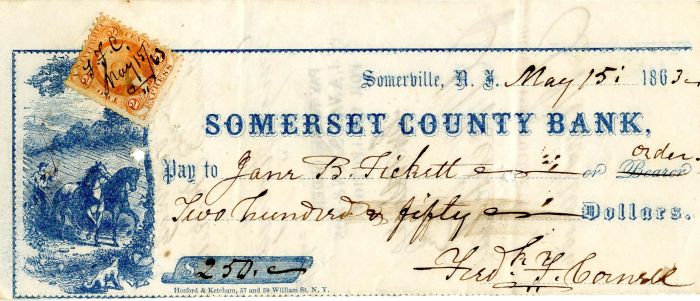 F. F. C.
May 15
/63
Somerville, N. J. May 15: 1863
SOMERSET COUNTY BANK,
Pay to Jane B. Tickett or Bearer order
Two hundred & fifty Dollars.
$250.
Fredk F. Cornell
Hosford & Ketcham, 57 and 59 William St. N. Y.